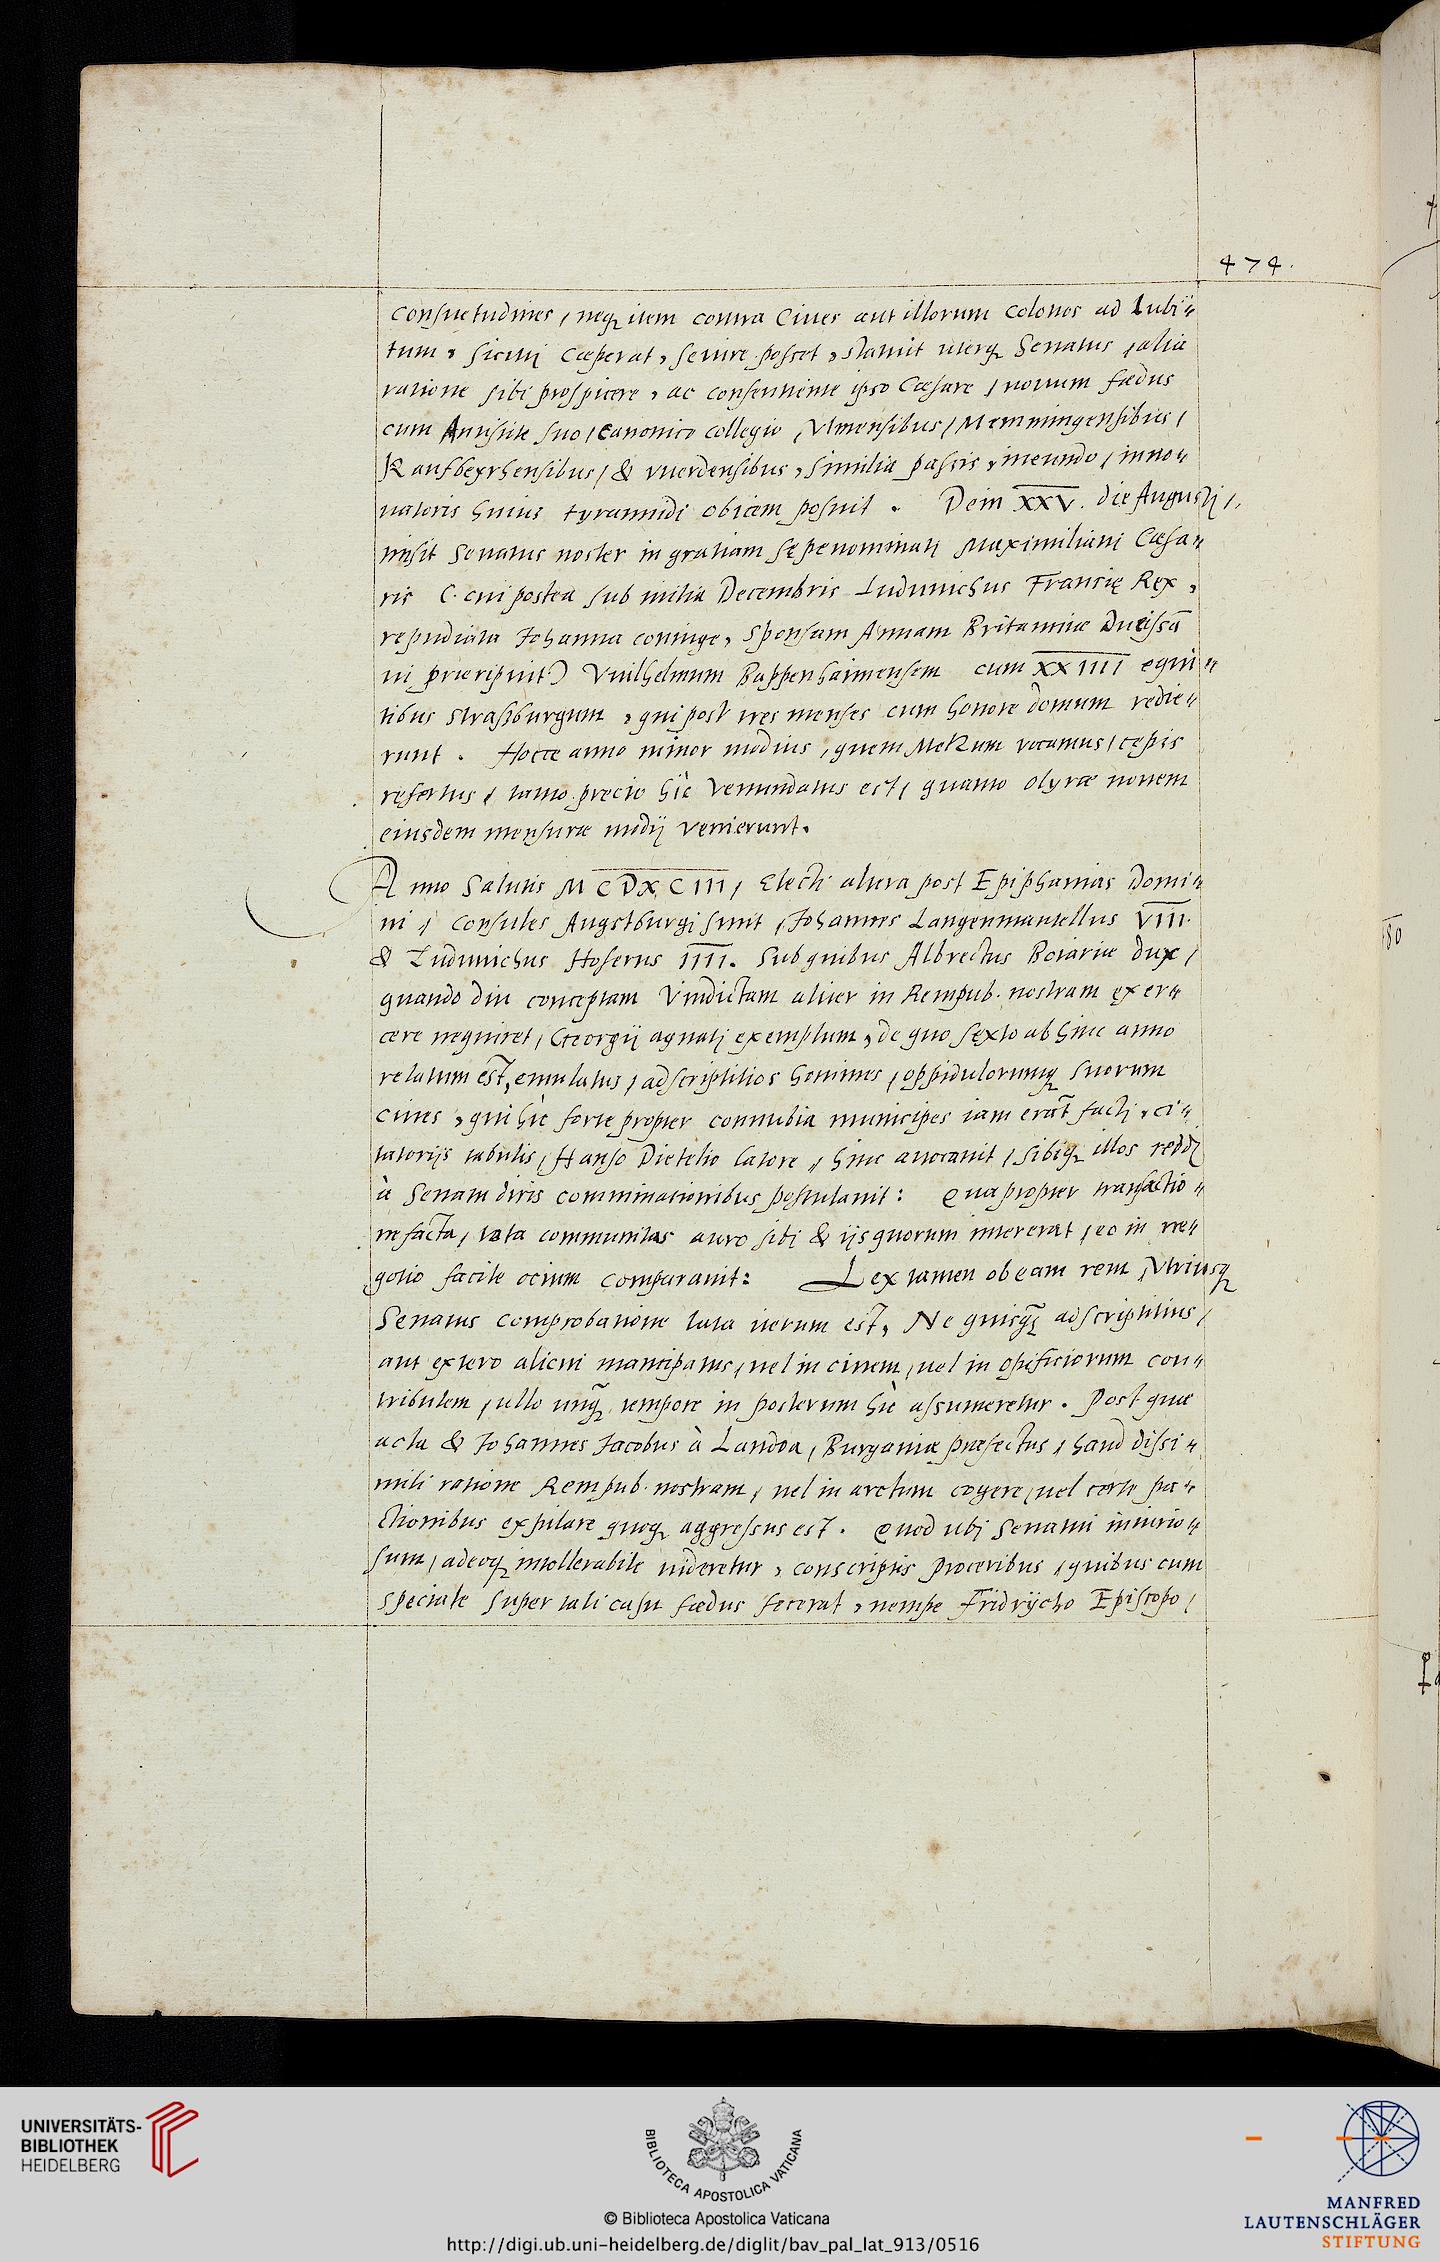 474.
consuetudines, neq₃ item contra Ciues aut illorum colonos ad lubi„
tum, sicuti cœperat, seuire posset, statuit uterq₃ Senatus, alia
ratione sibi prospicere, ac consentiente ipso Cæsare, nouum fœdus
cum Antistite suo, canonico collegio, Vlmensibus, Memmingensibus,
Kaufbeyrhensibus, & vuerdensibus, similia passis, ineundo, inno„
uatoris huius tyrannidi obicem posuit. Dein XXV. die Augusti,
misit Senatus noster in gratiam sępenominati Maximiliani Cæsa„
ris C. cui postea sub initia Decembris Ludouichus Francię Rex,
repudiata Johanna coniuge, sponsam Annam Britanniæ Ducissā
ui præripuit) Vuilhelmum Bappenhaimensem cum XXIIII equi„
tibus Straßburgum, qui post tres menses cum honore domum redie„
runt. Hocce anno minor modius, quem Metzum vocamus, cępis
refertus, tanto precio hìc venundatus est, quanto olyræ nouem
eiusdem mensuræ modij venierunt.
Anno Salutis MCDXCIII, Electi altera post Epiphanias Domi„
ni, Consules Augstburgi sunt, Johannes Langenmantellus VIII.
& Ludouichus Hoserus IIII. Sub quibus Albrectus Boiariæ dux,
quando diu conceptam Vindictam aliter in Rempub. nostram exer„
cere nequiret, Georgij agnati exemplum, de quo sexto abhinc anno
relatum est, emulatus, adscriptitios homines, oppidulorumq₃ suorum
ciues, qui hìc forte propter connubia municipes iam erāt facti, ci„
tatorijs tabulis, Hanso Dietelio latore, hinc auocauit, sibiq₃ illos reddj
à Senatu diris comminationibus postulauit: Quapropter transactio„
ne facta, lata communitas auro sibi & ijs quorum intererat, eo in ne„
gotio facile ocium comparauit: Lex tamen ob eam rem, Vtriusq₃
Senatus comprobatione lata iterum est, Ne quisq̄₃ adscriptitius,
aut extero alicui mancipatus, uel in ciuem, uel in opificiorum con„
tribulem, ullo unq̄₃ tempore in posterum hìc assumeretur. Post quæ
acta & Johannes Jacobus à Landoa, Burgauiæ præfectus, haud dissi„
mili ratione Rempub. nostram, uel in arctum cogere, uel certe pa„
ctionibus expilare quoq₃ aggressus est. Quod ubi Senatui iniurio„
sum, adeoq₃ intollerabile uideretur, conscriptis proceribus, quibus cum
speciale super tali casu fœdus fecerat, nempe Fridrÿcho Episcopo,
UNIVERSITÄTS-
BIBLIOTHEK
HEIDELBERG
BIBLIOTECA APOSTOLICA VATICANA
© Biblioteca Apostolica Vaticana
http://digi.ub.uni-heidelberg.de/diglit/bav_pal_lat_913/0516
MANFRED
LAUTENSCHLÄGER
STIFTUNG